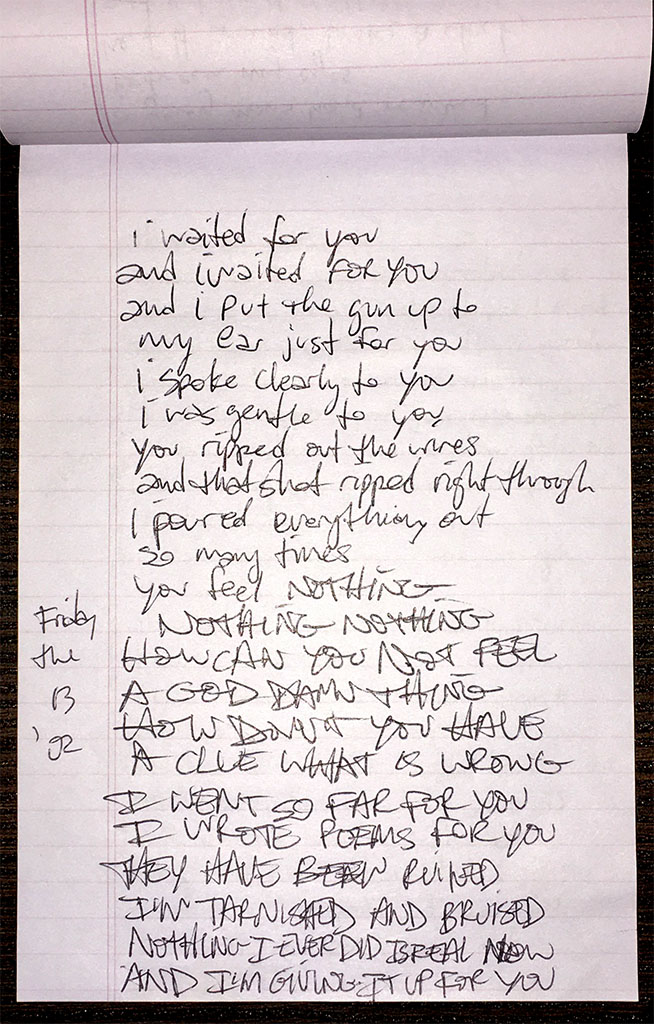 i waited for you
and i waited FOR YOU
and i put the gun up to
my ear just for you
i spoke clearly to you
i was gentle to you
you ripped out the wires
and that shot ripped right through
i poured everything out
so many times
you feel NOTHING
NOTHING NOTHING
HOW CAN YOU NOT FEEL
A GOD DAMN THING
HOW DON'T YOU HAVE
A CLUE WHAT IS WRONG
I WENT SO FAR FOR YOU
I WROTE POEMS FOR YOU
THEY HAVE BEEN RUINED
I'M TARNISHED AND BRUISED
NOTHING I EVER DID IS REAL NOW
AND I'M GIVING IT UP FOR YOU
Friday
the
13
'02